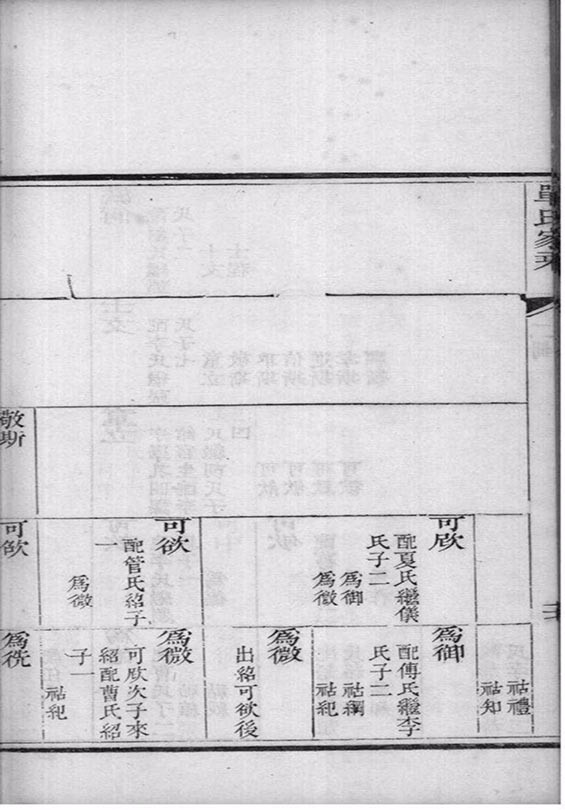 單氏家乘
敬斯
可欣
配夏氏繼儀
氏子二
爲御
爲微
可欲
配管氏紹子
爲微
可
祜禮
祜知
爲御
配傅氏繼李
氏子二
祜綱
祜紀
爲微
出紹可欲後
爲微
可欣次子來
紹配曹氏紹
子一
祜紀
爲